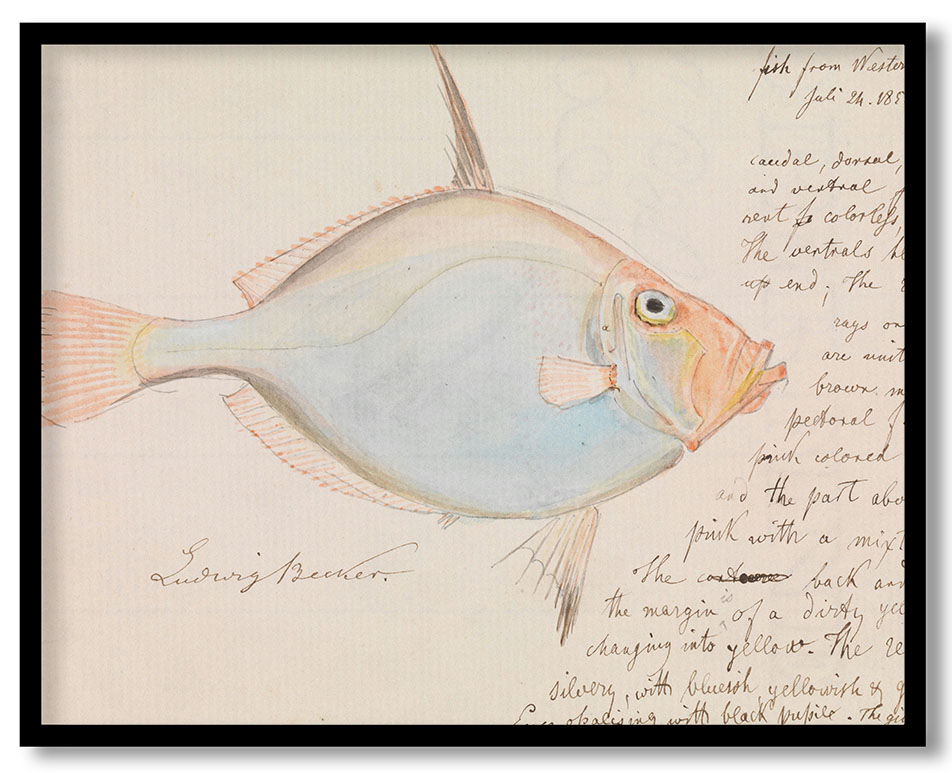 fish from Wester
Juli 24. 185
caudal, dorsal,
and ventral
rent & colorless,
The ventrals
up end; The
rays on
are unit
brown. m
pectoral f
pink colored
and the part abo
pink with a mixt
The back and
the margin is of a dirty ye
changing into yellow. The re
silvery, with blueish, yellowish & g
Eyes opalising with black pupile. The gi
a
Ludwig Becker.